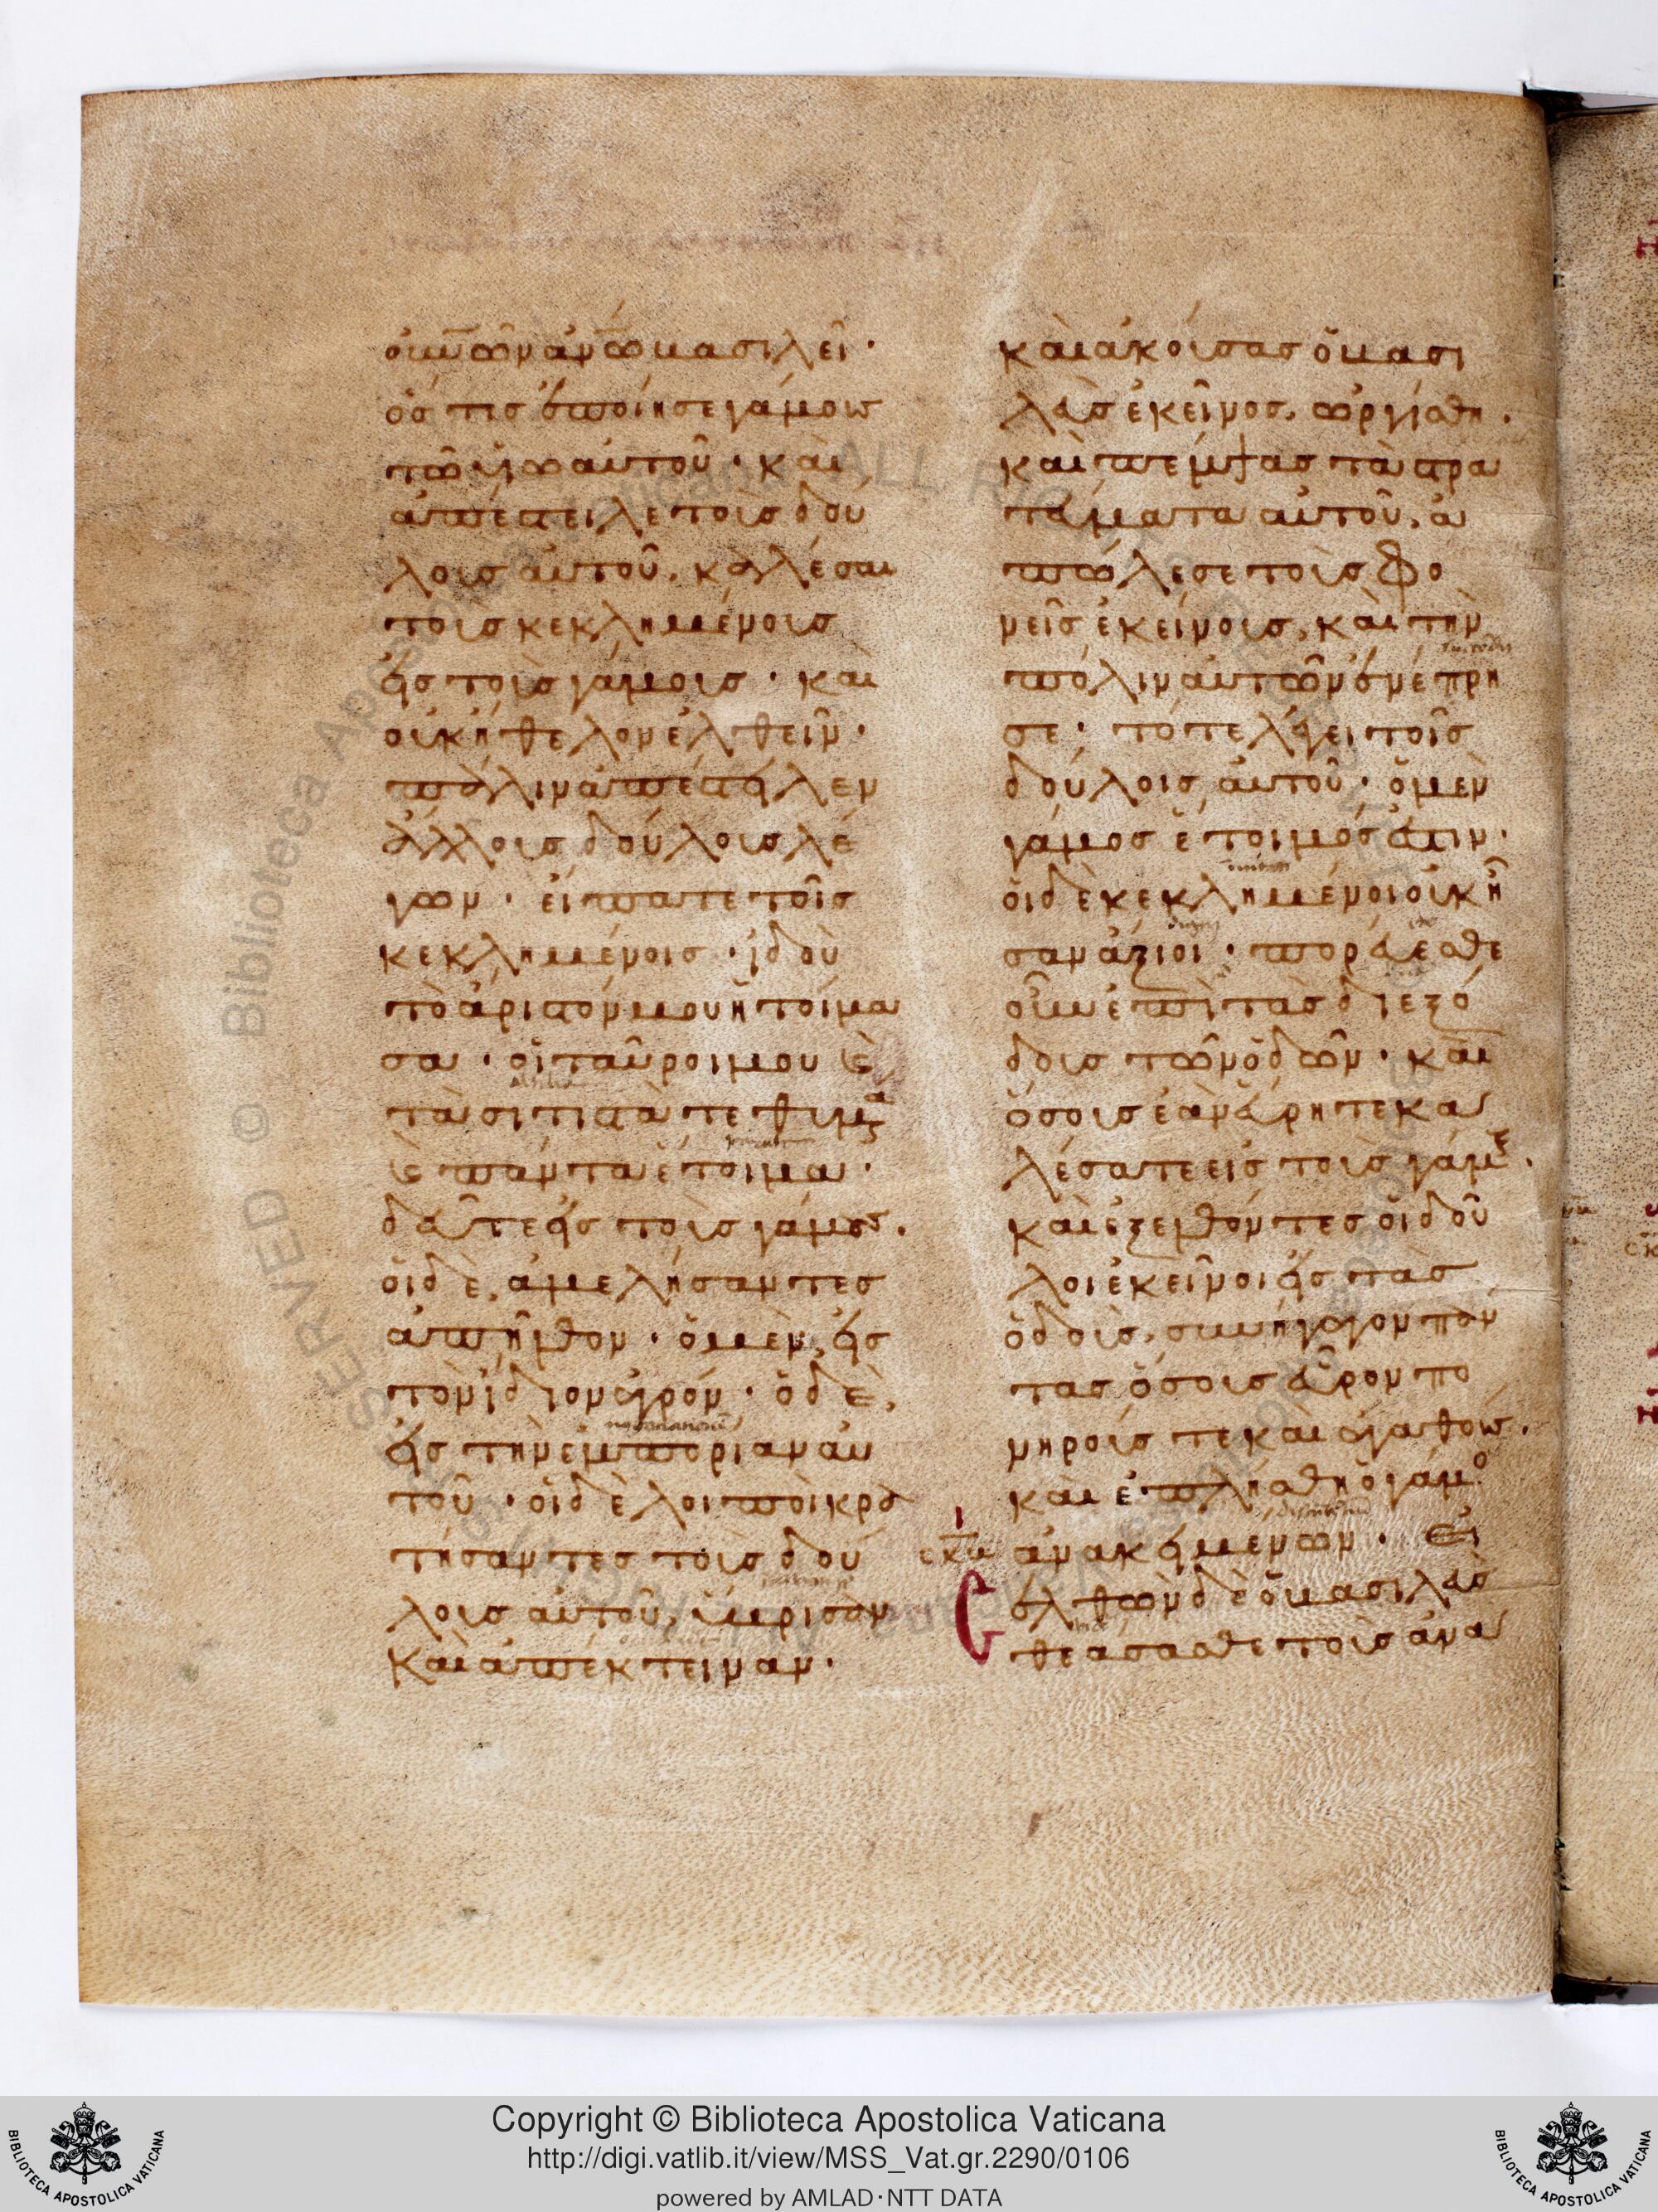 οὐνῶν ἀνῶ βασιλεῖ·
ὅς τις ἐποίησε γάμους
τῶ υἱῶ αὐτοῦ· καὶ
ἀπέστειλε τοὺς δού
λους αὐτοῦ, καλέσαι
τοὺς κεκλημένους
εἰς τοὺς γάμους· καὶ
οὐκ ἤθελον ἐλθεῖν·
πάλιν ἀπέστειλεν
ἄλλους δούλους λέ
γων· εἴπατε τοῖς
κεκλημένοις· ἰδοὺ
τὸ ἄριστόν μου ἡτοίμα
σα· οἱ ταῦροι μου καὶ
τὰ σιτιστὰ τεθυμα
καὶ πάντα ἕτοιμα·
δεῦτε εἰς τοὺς γάμους·
οἱ δὲ, ἀμελήσαντες
ἀπῆλθον· ὁ μὲν, εἰς
τὸν ἴδιον ἀγρόν· ὁ δὲ,
εἰς τὴν ἐμπορίαν αὐ
τοῦ· οἱ δὲ λοιποὶ κρα
τήσαντες τοὺς δού
λους αὐτοῦ, ὕβρισαν
καὶ ἀπέκτειναν·
καὶ ἀκούσας ὁ βασι
λεὺς ἐκεῖνος, ὠργίσθη·
καὶ πέμψας τὰ στρα
τεύματα αὐτοῦ, ἀ
πώλεσε τοὺς φο
νεῖς ἐκείνους, καὶ τὴν
πόλιν αὐτῶν ἐνέπρη
σε· τότε λέγει τοῖς
δούλοις αὐτοῦ· ὁ μὲν
γάμος ἕτοιμός ἐστιν·
οἱ δὲ κεκλημένοι οὐκ ἦ
σαν ἄξιοι· πορεύεσθε
οὖν ἐπὶ τὰς διεξό
δους τῶν ὁδῶν· καὶ
ὅσους ἐὰν εὕρητε κα
λέσατε εἰς τοὺς γάμους·
καὶ ἐξελθόντες οἱ δοῦ
λοι ἐκεῖνοι εἰς τὰς
ὁδοὺς, συνήγαγον πάν
τας ὅσους εὗρον πο
νηρούς τε καὶ ἀγαθούς·
καὶ ἐπλήσθη ὁ γάμος
ἀνακειμένων· Εἰ
σελθὼν δὲ ὁ βασιλεὺς
θεάσασθε τοὺς ἀνα
Copyright © Biblioteca Apostolica Vaticana
http://digi.vatlib.it/view/MSS_Vat.gr.2290/0106
powered by AMLAD·NTT DATA
BIBLIOTECA APOSTOLICA VATICANA
BIBLIOTECA APOSTOLICA VATICANA